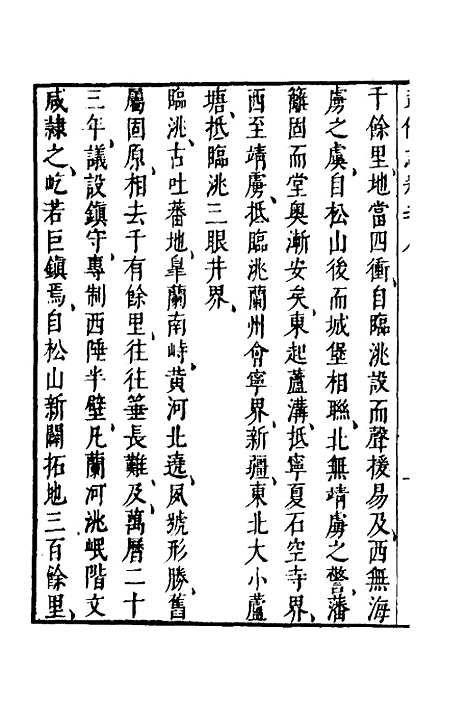 千餘里、地當四衝、自臨洮設而聲援易及、西無海
虜之虞、自松山後而城堡相聯、北無靖虜之警、藩
籬固而堂奧漸安矣、東起蘆溝、抵寧夏石空寺界、
西至靖虜、抵臨洮蘭州會寧界、新疆、東北大小蘆
塘、抵臨洮三眼井界、
臨洮、古吐蕃地、皐蘭南峙、黃河北遶、夙號形勝、舊
屬固原、相去千有餘里、往往箠長難及、萬曆二十
三年、議設鎮守、專制西陲半壁、凡蘭河洮岷階文
咸隷之、屹若巨鎮焉、自松山新闢、拓地三百餘里、